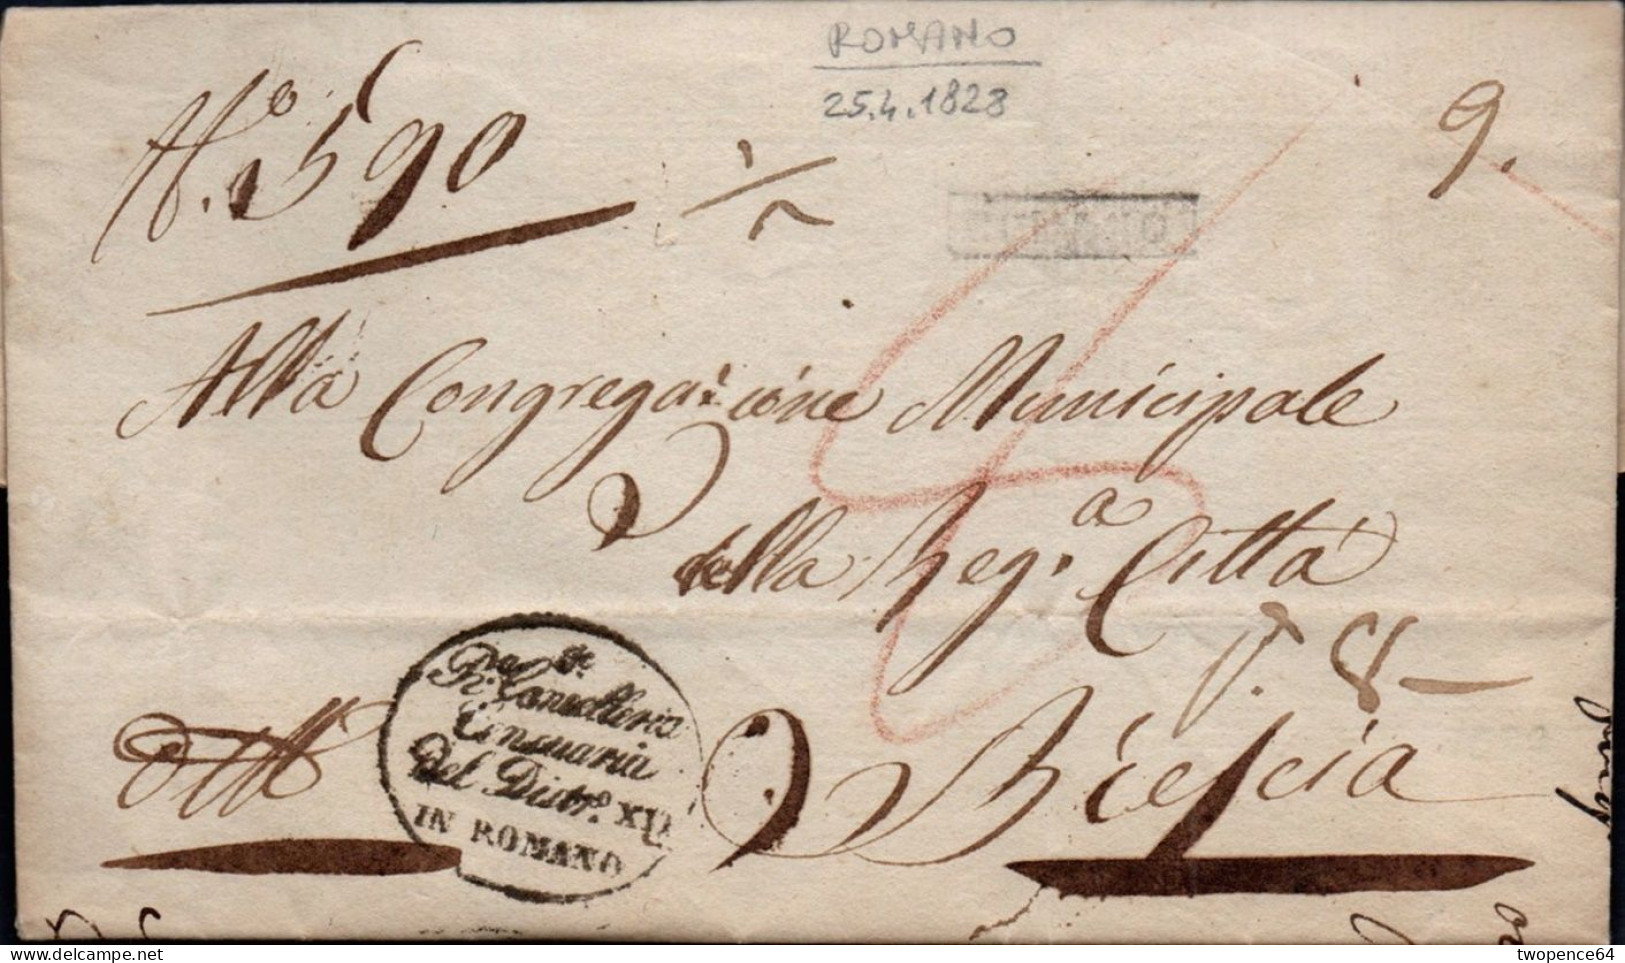 ROMANO
25.4.1828
N.º 590
1/2
9.
ROMANO
Alla Congregazione Municipale
della Reg.ª Città
P. 8 —
di Brescia
R.ª Cancelleria
Censuaria
Del Distr.º XI
IN ROMANO
twopence64